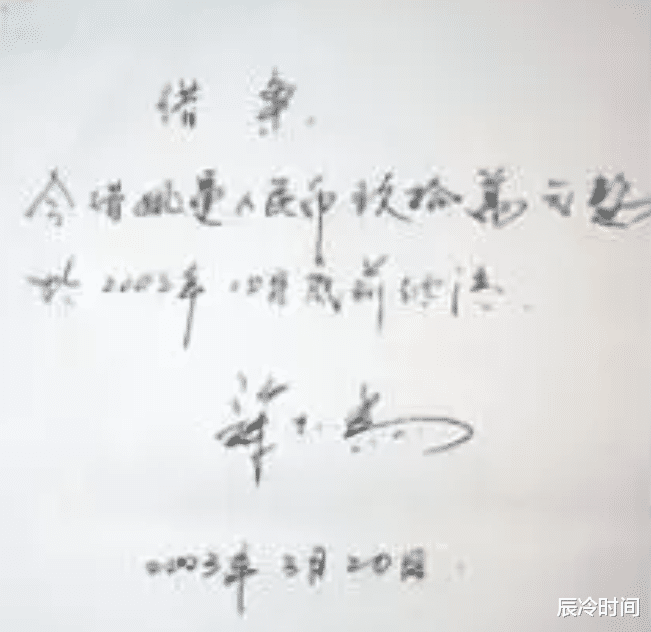 借条
今借姚建人民币玖拾万元整
于2003年10月底前付清.
2003年3月20日.
辰冷时间